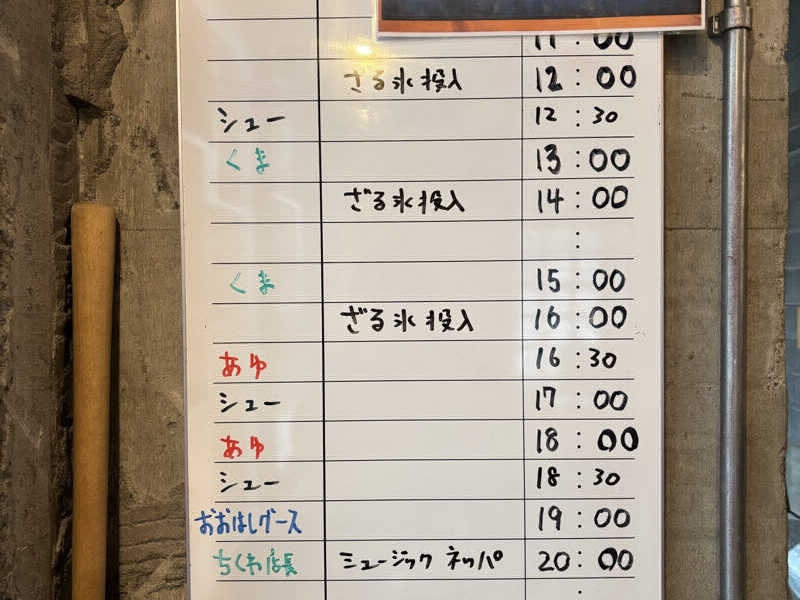 11:00
ざる氷投入 12:00
シュー 12:30
くま 13:00
ざる氷投入 14:00
:
くま 15:00
ざる氷投入 16:00
あゆ 16:30
シュー 17:00
あゆ 18:00
シュー 18:30
おおはしグース 19:00
ちくわ店長 ミュージックネッパ 20:00